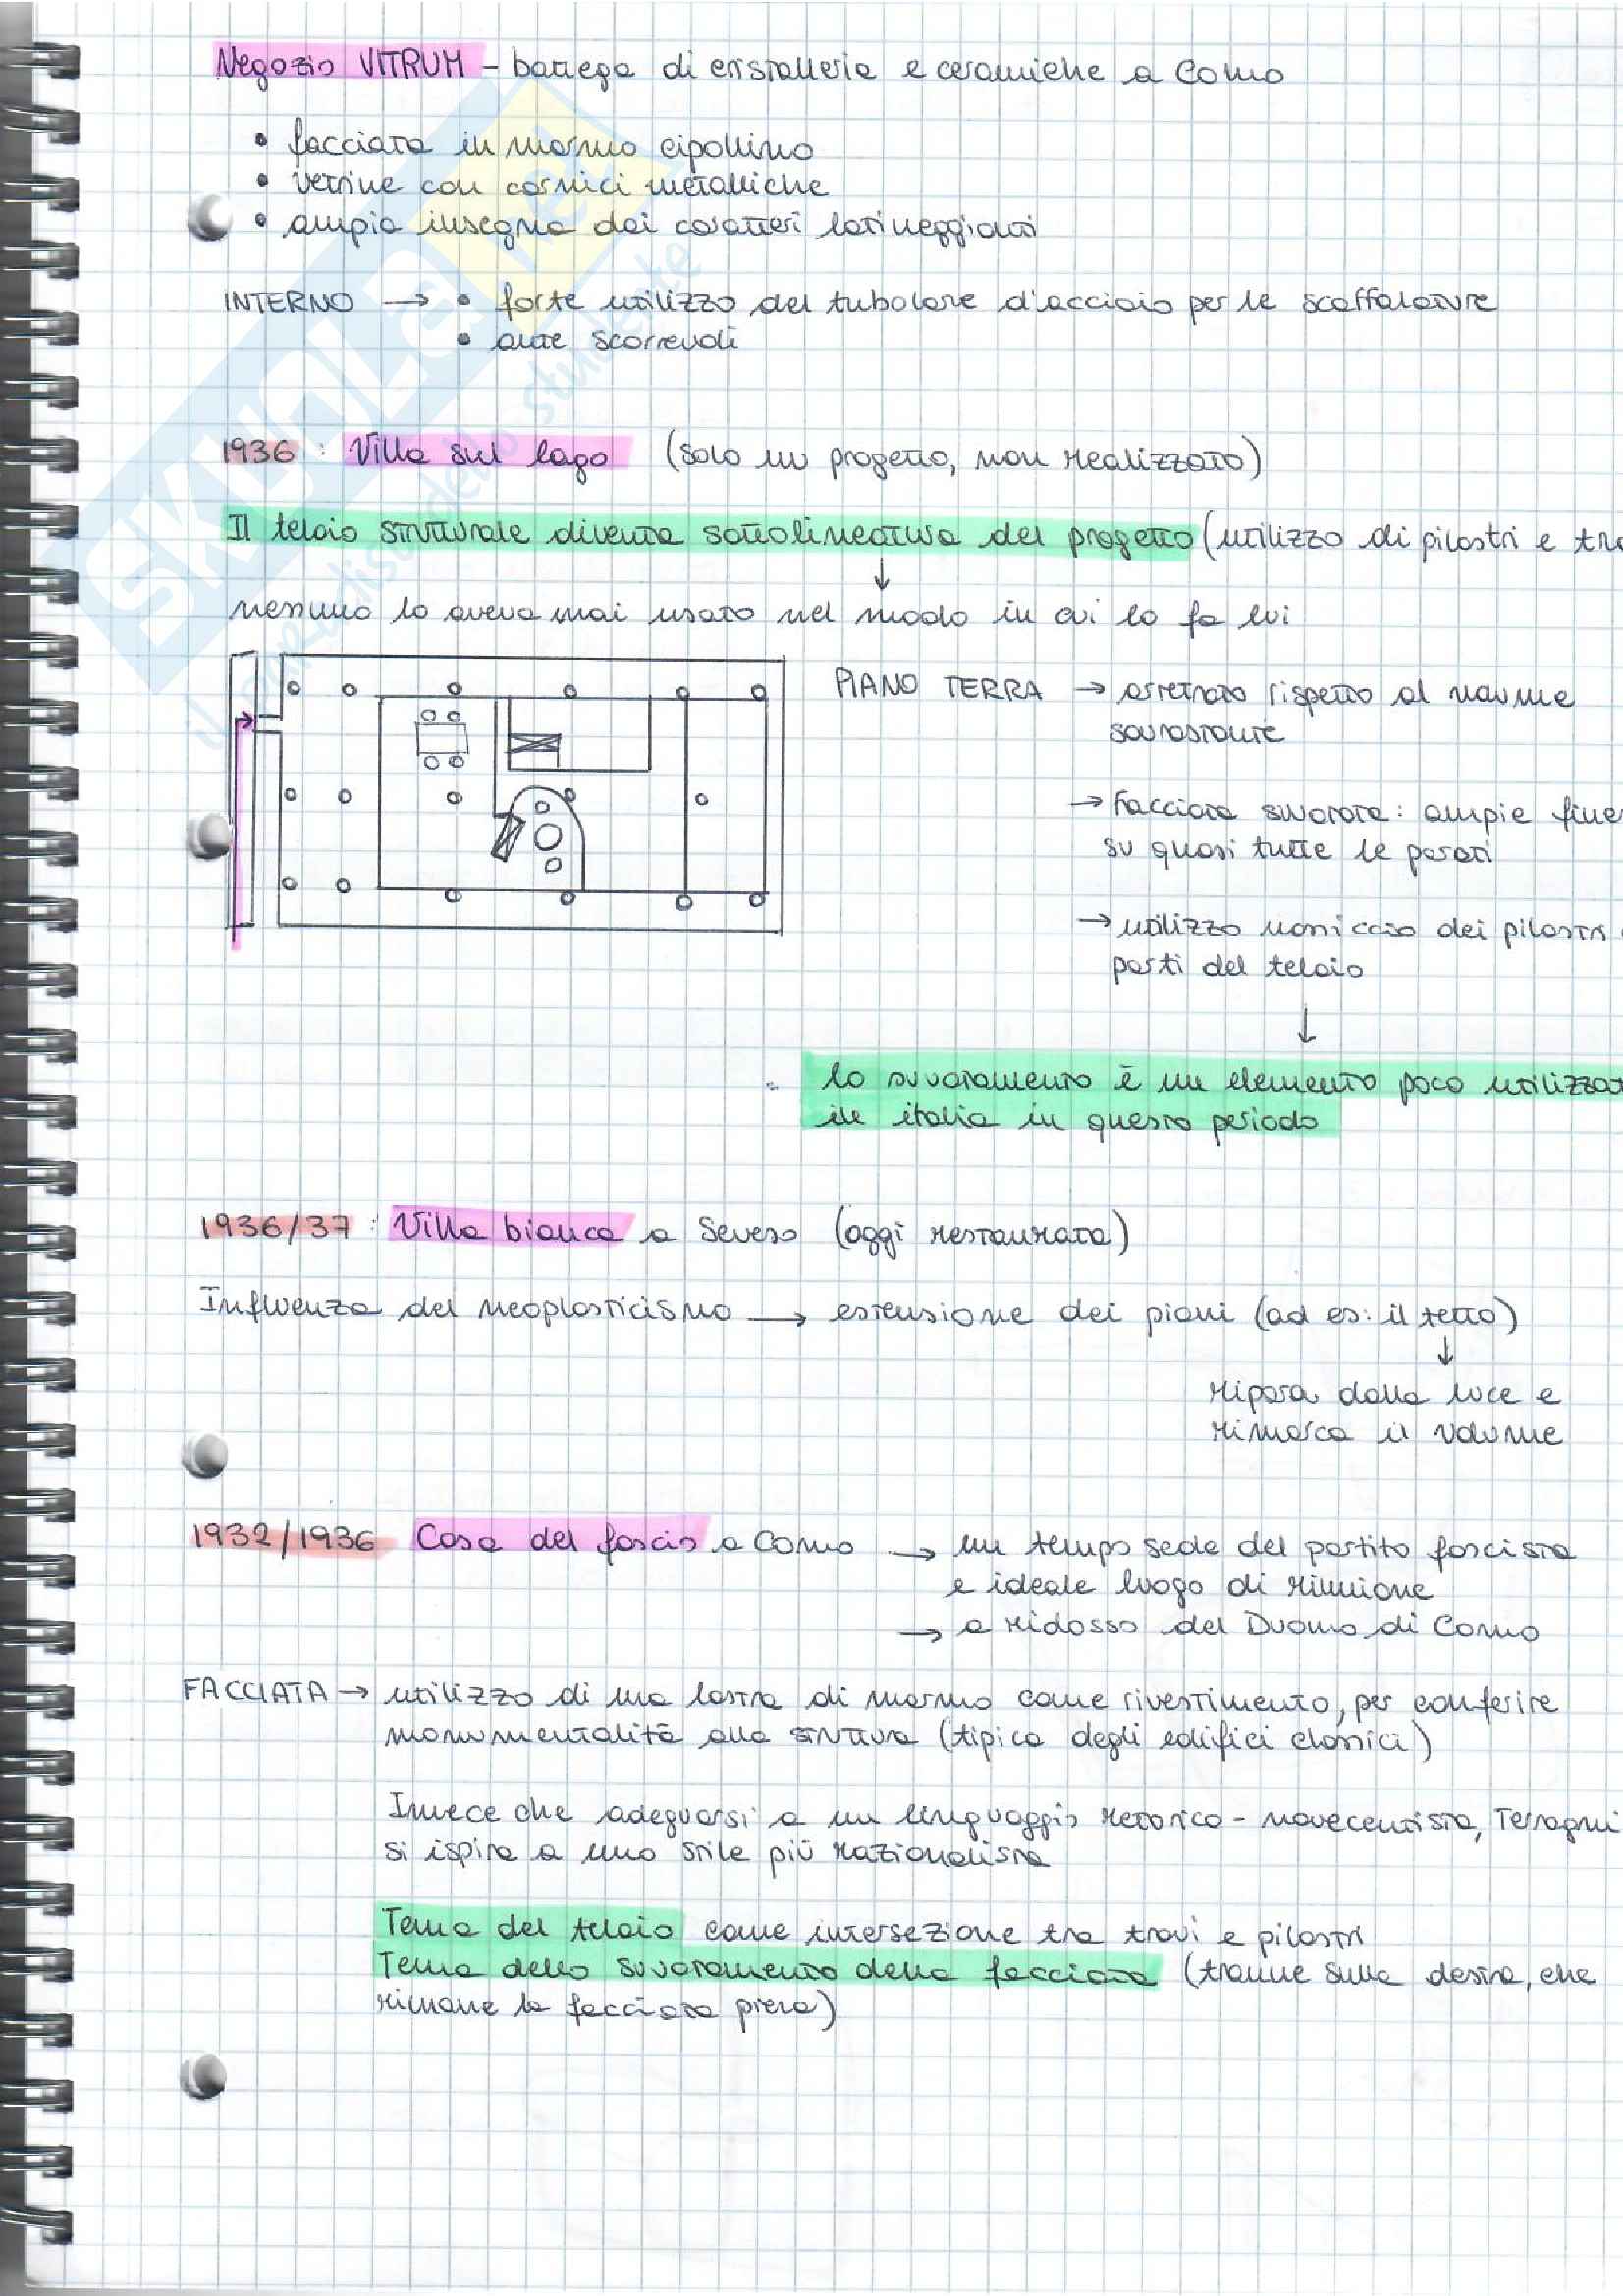 Negozio VITRUM - bottega di cristalleria e ceramiche a Como
• facciata in marmo cipollino
• vetrine con cornici metalliche
• ampia insegna dai caratteri latineggianti
INTERNO → • forte utilizzo del tubolare d'acciaio per le scaffalature
• ante scorrevoli
1936: Villa sul lago (solo un progetto, non realizzato)
Il telaio strutturale diventa sottolineatura del progetto (utilizzo di pilastri e tra
↓
nessuno lo aveva mai usato nel modo in cui lo fa lui
PIANO TERRA → arretrato rispetto al volume
sovrastante
→ Facciata svuotata: ampie fine
su quasi tutte le pareti
→ utilizzo massiccio dei pilastri
parti del telaio
↓
lo svuotamento è un elemento poco utilizzat
in italia in questo periodo
1936/37: Villa bianca a Seveso (oggi restaurata)
Influenza del neoplasticismo → estensione dei piani (ad es: il tetto)
↓
ripara dalla luce e
rimarca il volume
1932/1936 Casa del fascio a Como → un tempo sede del partito fascista
e ideale luogo di riunione
→ a ridosso del Duomo di Como
FACCIATA → utilizzo di una lastra di marmo come rivestimento, per conferire
monumentalità alla struttura (tipica degli edifici classici)
Invece che adeguarsi a un linguaggio retorico-novecentista, Terragni
si ispira a uno stile più razionalista
Tema del telaio come intersezione tra travi e pilastri
Tema dello svuotamento della facciata (tranne sulla destra, che
rimane la facciata piena)
SKUOLA.net